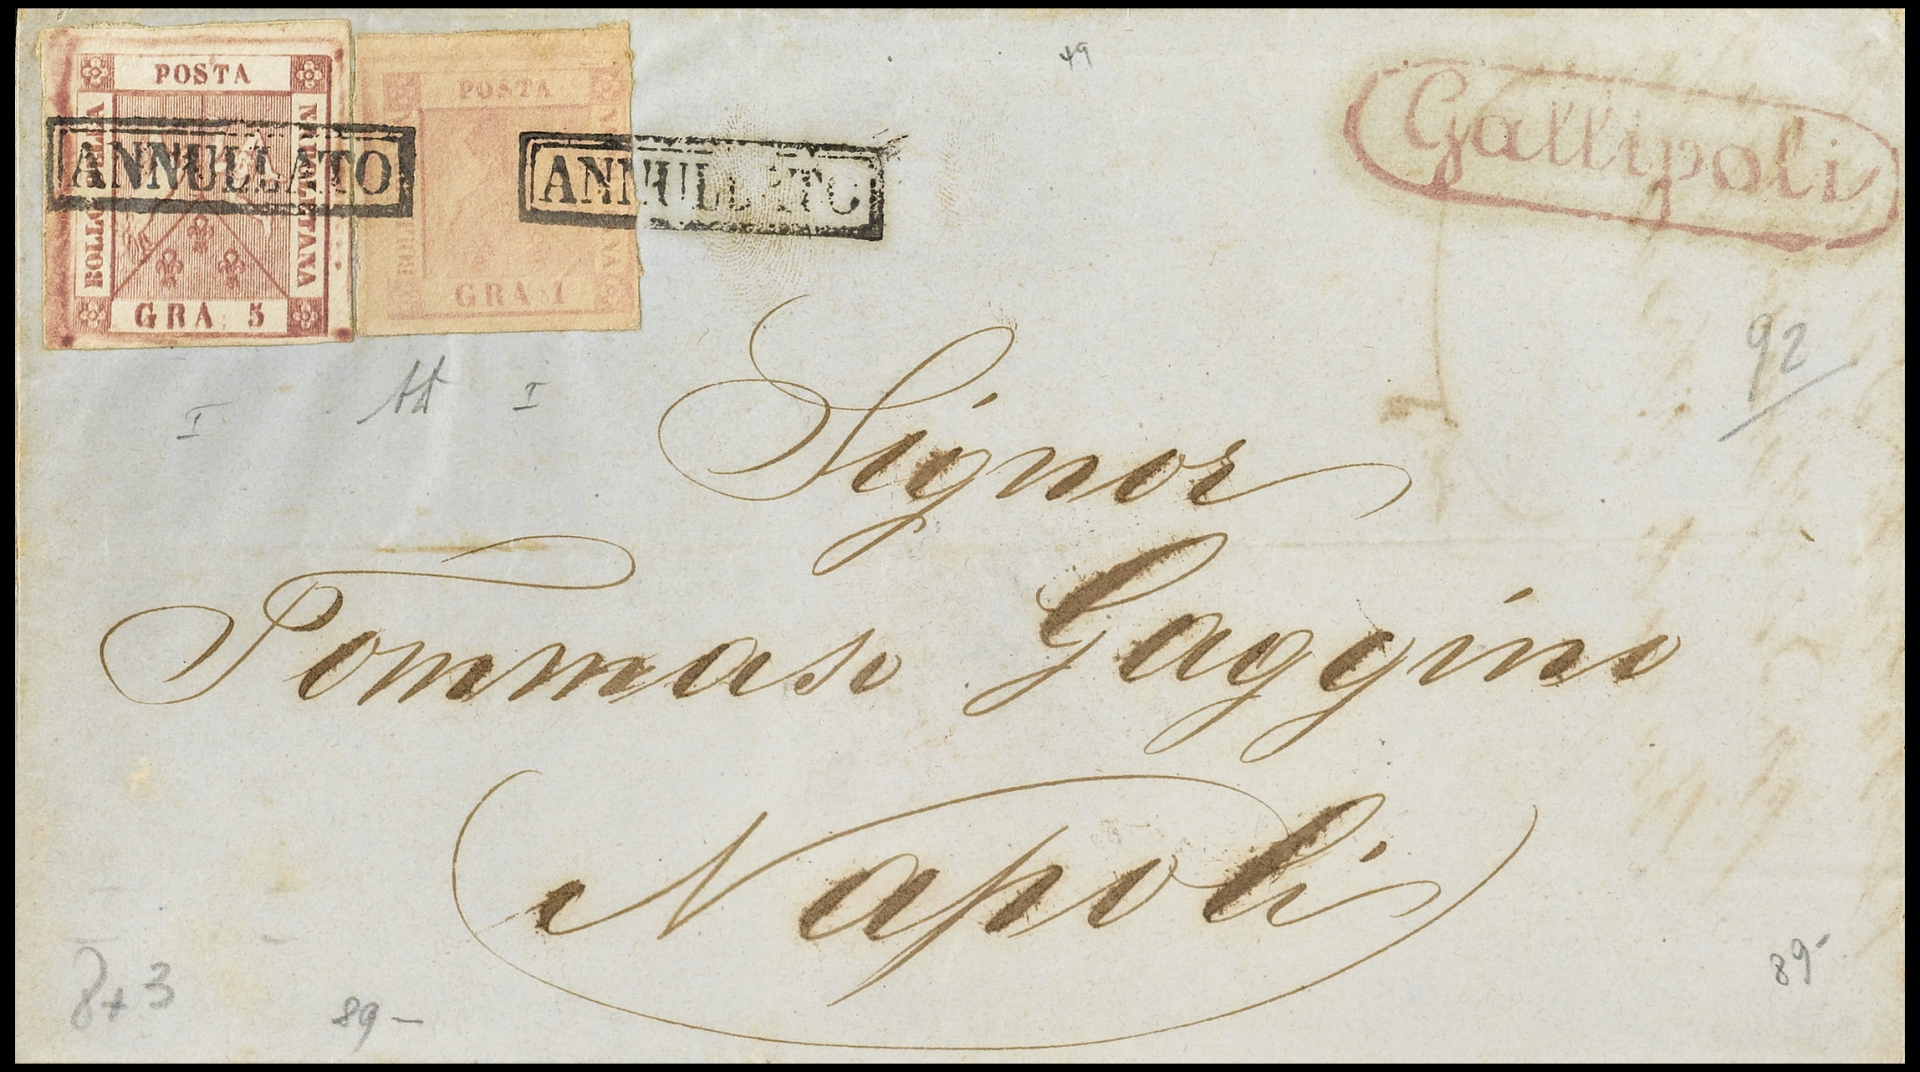 POSTA
BOLLO DELLA
NAPOLETANA
GRA 5
ANNULLATO
POSTA
GRA 1
ANNULLATO
Gallipoli
49
92
I
I
Signor
Tommaso Gaggino
Napoli
8+3
89-
89-